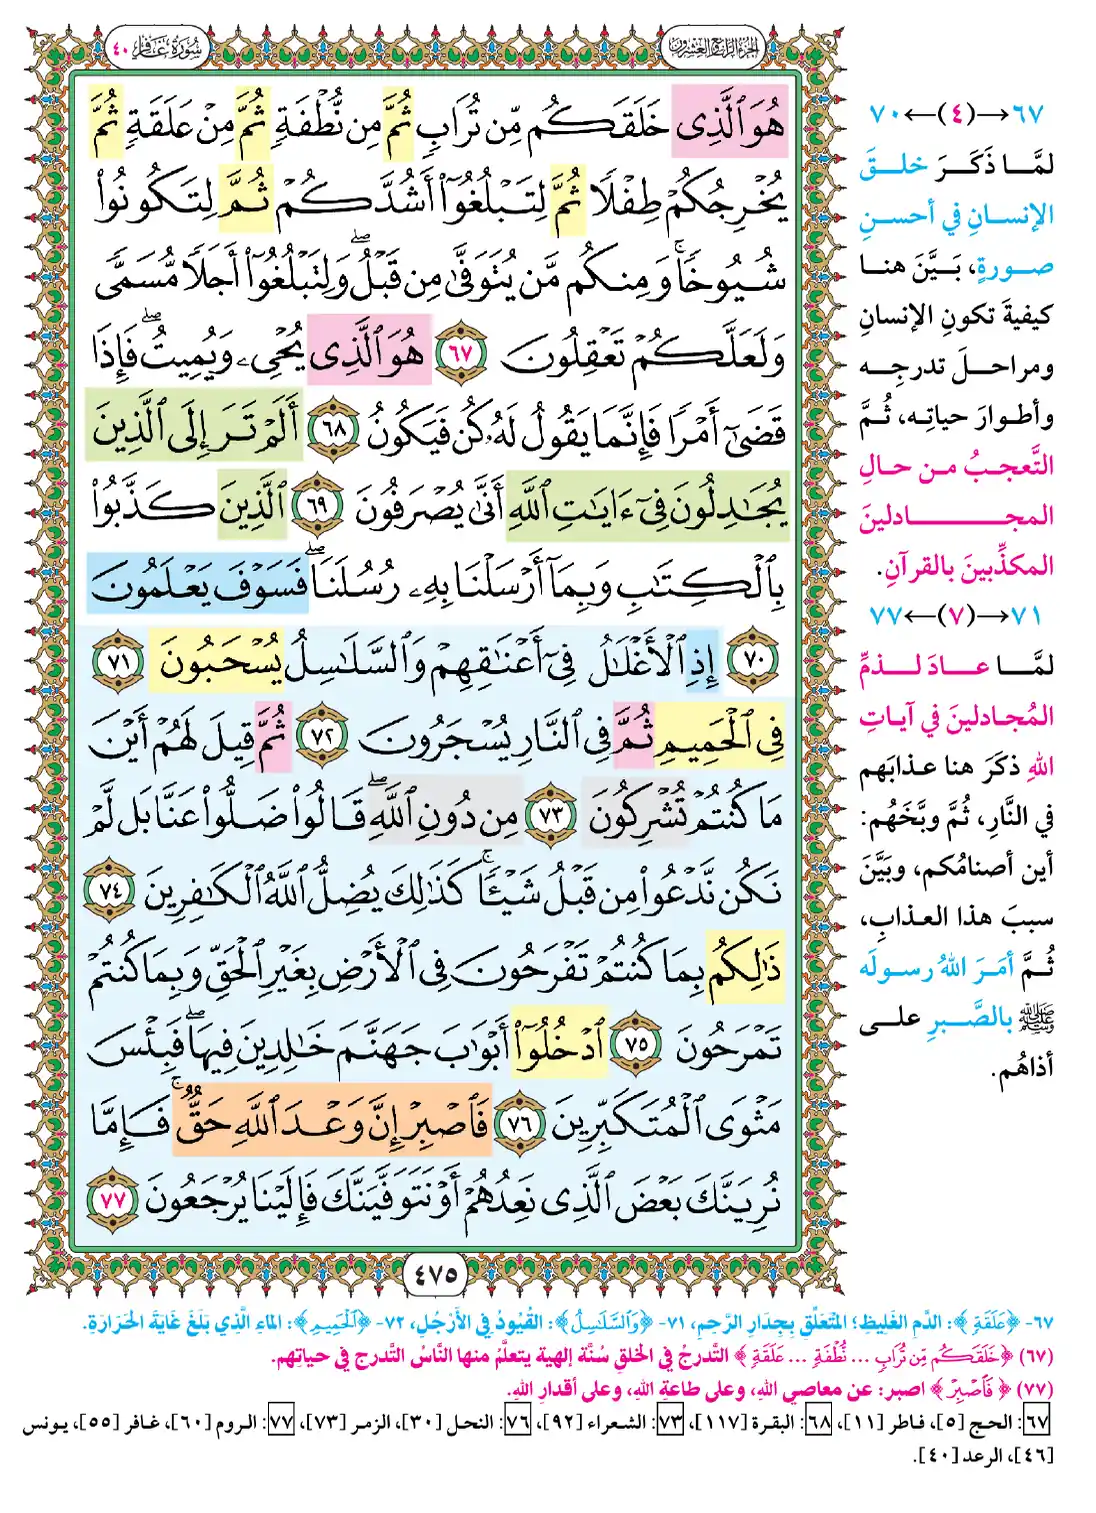 الجزء الرابع والعشرون
سورة غافر ٤٠
هُوَ ٱلَّذِى خَلَقَكُم مِّن تُرَابٍ ثُمَّ مِن نُّطْفَةٍ ثُمَّ مِنْ عَلَقَةٍ ثُمَّ
يُخْرِجُكُمْ طِفْلًا ثُمَّ لِتَبْلُغُوٓا۟ أَشُدَّكُمْ ثُمَّ لِتَكُونُوا۟
شُيُوخًا ۚ وَمِنكُم مَّن يُتَوَفَّىٰ مِن قَبْلُ ۖ وَلِتَبْلُغُوٓا۟ أَجَلًا مُّسَمًّى
وَلَعَلَّكُمْ تَعْقِلُونَ ٦٧ هُوَ ٱلَّذِى يُحْىِۦ وَيُمِيتُ ۖ فَإِذَا
قَضَىٰٓ أَمْرًا فَإِنَّمَا يَقُولُ لَهُۥ كُن فَيَكُونُ ٦٨ أَلَمْ تَرَ إِلَى ٱلَّذِينَ
يُجَٰدِلُونَ فِىٓ ءَايَٰتِ ٱللَّهِ أَنَّىٰ يُصْرَفُونَ ٦٩ ٱلَّذِينَ كَذَّبُوا۟
بِٱلْكِتَٰبِ وَبِمَآ أَرْسَلْنَا بِهِۦ رُسُلَنَا ۖ فَسَوْفَ يَعْلَمُونَ
٧٠ إِذِ ٱلْأَغْلَٰلُ فِىٓ أَعْنَٰقِهِمْ وَٱلسَّلَٰسِلُ يُسْحَبُونَ ٧١
فِى ٱلْحَمِيمِ ثُمَّ فِى ٱلنَّارِ يُسْجَرُونَ ٧٢ ثُمَّ قِيلَ لَهُمْ أَيْنَ
مَا كُنتُمْ تُشْرِكُونَ ٧٣ مِن دُونِ ٱللَّهِ ۖ قَالُوا۟ ضَلُّوا۟ عَنَّا بَل لَّمْ
نَكُن نَّدْعُوا۟ مِن قَبْلُ شَيْـًٔا ۚ كَذَٰلِكَ يُضِلُّ ٱللَّهُ ٱلْكَٰفِرِينَ ٧٤
ذَٰلِكُم بِمَا كُنتُمْ تَفْرَحُونَ فِى ٱلْأَرْضِ بِغَيْرِ ٱلْحَقِّ وَبِمَا كُنتُمْ
تَمْرَحُونَ ٧٥ ٱدْخُلُوٓا۟ أَبْوَٰبَ جَهَنَّمَ خَٰلِدِينَ فِيهَا ۖ فَبِئْسَ
مَثْوَى ٱلْمُتَكَبِّرِينَ ٧٦ فَٱصْبِرْ إِنَّ وَعْدَ ٱللَّهِ حَقٌّ ۚ فَإِمَّا
نُرِيَنَّكَ بَعْضَ ٱلَّذِى نَعِدُهُمْ أَوْ نَتَوَفَّيَنَّكَ فَإِلَيْنَا يُرْجَعُونَ ٧٧
٤٧٥
٦٧→(٤)←٧٠
لمَّا ذَكَرَ خلقَ
الإنسانِ في أحسنِ
صورةٍ، بَيَّنَ هنا
كيفيةَ تكونِ الإنسانِ
ومراحلَ تدرجِه
وأطوارَ حياتِه، ثُمَّ
التَّعجبُ من حالِ
المجادلينَ
المكذِّبينَ بالقرآنِ.
٧١→(٧)←٧٧
لمَّا عادَ لذمِّ
المُجادلينَ في آياتِ
اللهِ ذكَرَ هنا عذابَهم
في النَّارِ، ثُمَّ وبَّخَهُم:
أين أصنامُكم، وبَيَّنَ
سببَ هذا العذابِ،
ثُمَّ أمَرَ اللهُ رسولَه
ﷺ بالصَّبرِ على
أذاهُم.
٦٧- ﴿عَلَقَةٍ﴾: الدَّمِ الغَلِيظِ؛ المُتَعَلِّقِ بِجِدَارِ الرَّحِمِ، ٧١- ﴿وَٱلسَّلَٰسِلُ﴾: القُيُودُ فِي الأَرْجُلِ، ٧٢- ﴿ٱلْحَمِيمِ﴾: المَاءِ الَّذِي بَلَغَ غَايَةَ الحَرَارَةِ.
(٦٧) ﴿خَلَقَكُم مِّن تُرَابٍ ... نُّطْفَةٍ ... عَلَقَةٍ﴾ التَّدرجُ في الخلقِ سُنَّة إلهية يتعلَّمُ منها النَّاسُ التَّدرج في حياتِهم.
(٧٧) ﴿فَٱصْبِرْ﴾ اصبر: عن معاصي اللهِ، وعلى طاعةِ اللهِ، وعلى أقدارِ اللهِ.
٦٧: الحج [٥]، فاطر [١١]، ٦٨: البقرة [١١٧]، ٧٣: الشعراء [٩٢]، ٧٦: النحل [٣٠]، الزمر [٧٣]، ٧٧: الروم [٦٠]، غافر [٥٥]، يونس
[٤٦]، الرعد [٤٠].